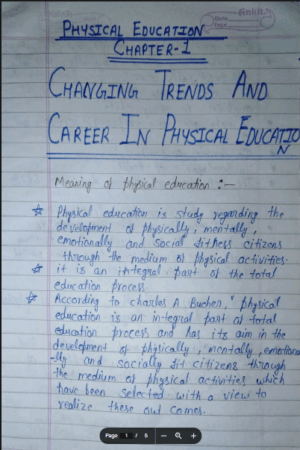 Ankit
Date
Page
PHYSICAL EDUCATION
CHAPTER-1
CHANGING TRENDS AND
CAREER IN PHYSICAL EDUCATIO
N
Meaning of physical education :—
☆ Physical education is study regarding the
development of physically, mentally,
emotionally and social fitness citizens
through the medium of physical activities.
☆ it is an integral part of the total
education process
☆ According to charles A Bucher, " physical
education is an in-tegral part of total
education process and has its aim in the
development of physically, mentally, emotiona
-lly and socially fit citizens through
the medium of physical activities which
have been selected with a view to
realize these out comes.
Page 1 / 6